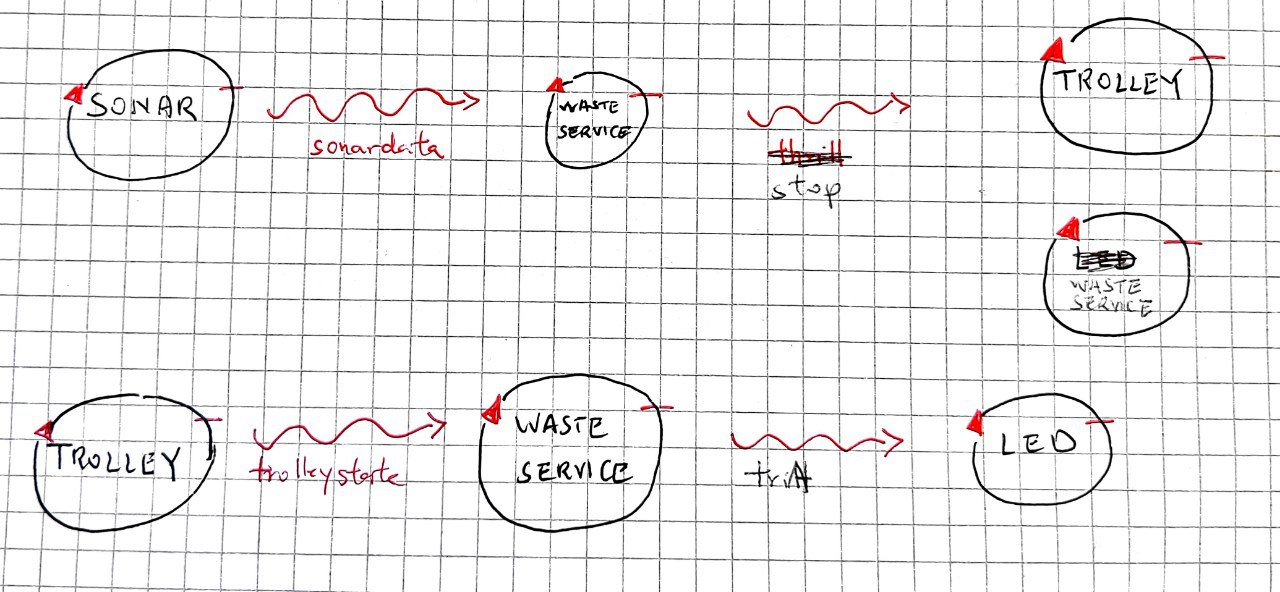 SONAR
sonardata
WASTE
SERVICE
stop
TROLLEY
WASTE
SERVICE
TROLLEY
trolleystate
WASTE
SERVICE
LED